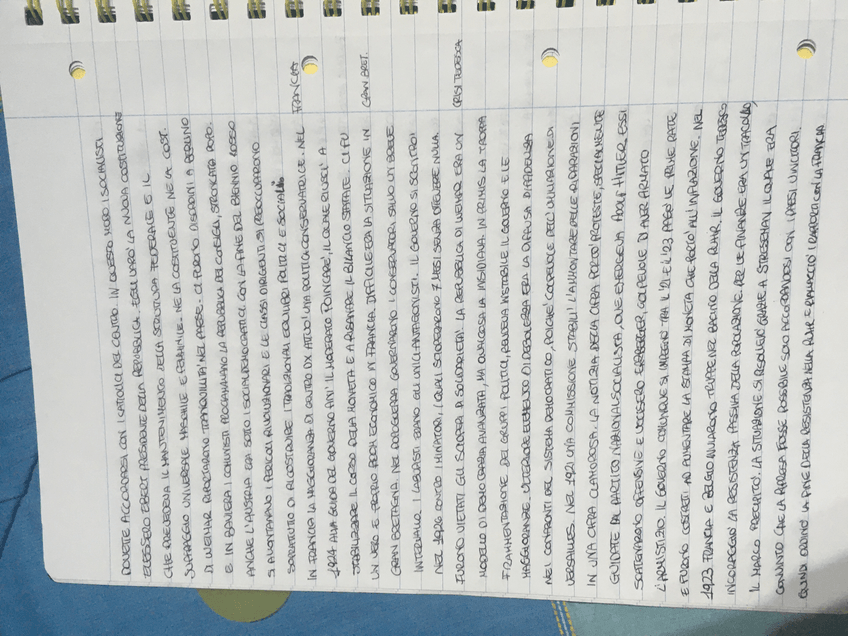 DOVETTE ACCORDARSI CON I CATTOLICI DEL CENTRO. IN QUESTO MODO I SOCIALISTI
ELESSERO EBERT PRESIDENTE DELLA REPUBBLICA. EGLI VARÒ LA NUOVA COSTITUZIONE
CHE PREVEDEVA IL MANTENIMENTO DELLA STRUTTURA FEDERALE E IL
SUFFRAGIO UNIVERSALE MASCHILE E FEMMINILE. NÈ LA COSTITUENTE NÈ LA COST.
DI WEIMAR RIPORTARONO TRANQUILLITÀ NEL PAESE. CI FURONO DISORDINI A BERLINO
E IN BAVIERA I COMUNISTI PROCLAMARONO LA REPUBBLICA DEI CONSIGLI, STRONCATA DOPO.
ANCHE L'AUSTRIA ERA SOTTO I SOCIALDEMOCRATICI. CON LA FINE DEL BIENNIO ROSSO
SI ALLONTANANO I PERICOLI RIVOLUZIONARI E LE CLASSI DIRIGENTI SI PREOCCUPARONO
SOPRATUTTO DI RICOSTRUIRE I TRADIZIONALI EQUILIBRI POLITICI E SOCIALI.
IN FRANCIA LA MAGGIORANZA DI CENTRO DX ATTUÒ UNA POLITICA CONSERVATRICE. NEL FRANCIA
1924 ALLA GUIDA DEL GOVERNO ANDÒ IL MODERATO POINCARÈ, IL QUALE RIUSCÌ A
STABILIZZARE IL CORSO DELLA MONETA E A RISANARE IL BILANCIO STATALE. CI FU
UN VERO E PROPRIO BOOM ECONOMICO IN FRANCIA. DIFFICILE ERA LA SITUAZIONE IN GRAN BRET.
GRAN BRETAGNA. NEL DOPOGUERRA GOVERNARONO I CONSERVATORI SALVO UN BREVE
INTERVALLO. I LABURISTI ERANO GLI UNICI ANTAGONISTI. IL GOVERNO SI SCONTRÒ
NEL 1926 CONTRO I MINATORI, I QUALI SCIOPERARONO 7 MESI SENZA OTTENERE NULLA.
FURONO VIETATI GLI SCIOPERI DI SOLIDARIETÀ. LA REPUBBLICA DI WEIMAR ERA UN CRISI TEDESCA
MODELLO DI DEMOCRAZIA AVANZATA, MA QUALCOSA LA INSIDIAVA. IN PRIMIS LA TROPPA
FRAMMENTAZIONE DEI GRUPPI POLITICI, RENDEVA INSTABILE IL GOVERNO E LE
MAGGIORANZE. ULTERIORE ELEMENTO DI DEBOLEZZA ERA LA DIFFUSA DIFFIDENZA
NEI CONFRONTI DEL SISTEMA DEMOCRATICO, POICHÈ COLPEVOLE DELL'UMILIAZIONE DI
VERSAILLES. NEL 1921 UNA COMMISSIONE STABILÌ L'AMMONTARE DELLE RIPARAZIONI
IN UNA CIFRA CLAMOROSA. LA NOTIZIA DELLA CIFRA PORTÒ PROTESTE, SPECIALMENTE
GUIDATE DAL PARTITO NAZIONALSOCIALISTA, OVE EMERGEVA ADOLF HITLER. ESSI
SCATENARONO OFFENSIVE E UCCISERO ERZBERGER, COLPEVOLE DI AVER FIRMATO
L'ARMISTIZIO. IL GOVERNO COMUNQUE SI IMPEGNÒ TRA IL '21 E IL '23 PAGÒ LE PRIME RATE
E FURONO COSTRETTI AD AUMENTARE LA STAMPA DI MONETA CHE PORTÒ ALL'INFLAZIONE. NEL
1923 FRANCIA E BELGIO INVIARONO TRUPPE NEL BACINO DELLA RUHR. IL GOVERNO TEDESCO
INCORAGGIÒ LA RESISTENZA PASSIVA DELLA POPOLAZIONE. PER LE FINANZE ERA UN TRACOLLO,
IL MARCO PRECIPITÒ. LA SITUAZIONE SI RISOLLEVÒ GRAZIE A STRESEMAN, IL QUALE ERA
CONVINTO CHE LA RIPRESA FOSSE POSSIBILE SOLO ACCORDANDOSI CON I PAESI VINCITORI.
QUINDI ORDINÒ LA FINE DELLA RESISTENZA NELLA RUHR E RIALLACCIÒ I RAPPORTI CON LA FRANCIA